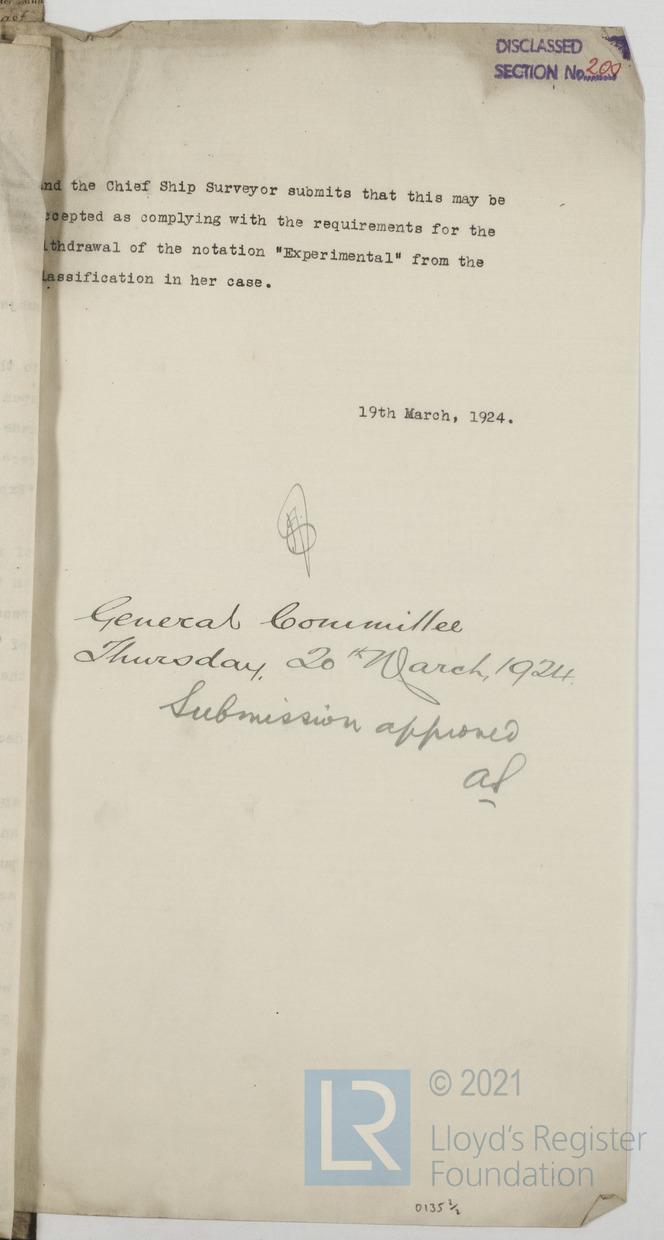 DISCLASSED
SECTION No. 200
nd the Chief Ship Surveyor submits that this may be
ccepted as complying with the requirements for the
ithdrawal of the notation "Experimental" from the
lassification in her case.
19th March, 1924.
General Committee
Thursday, 20th March, 1924.
Submission approved
© 2021
LR
Lloyd's Register
Foundation
0135 2/2